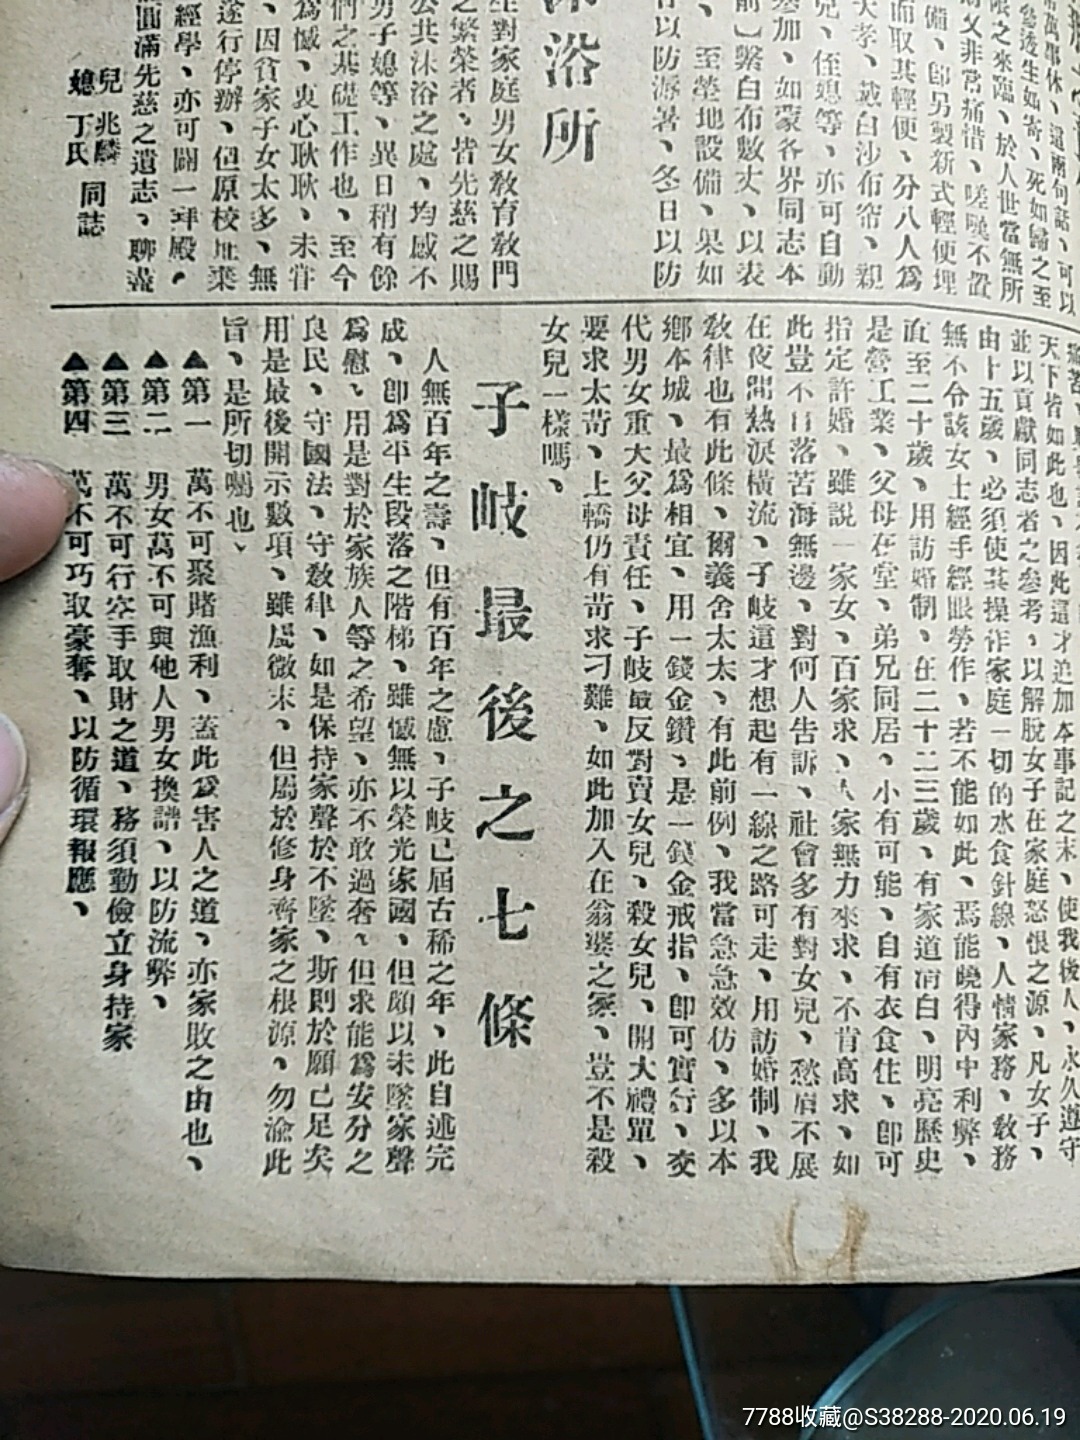 天下皆如此也、因此這才追加本事記之末、使我後人、永久遵守
並以貢獻同志者之參考、以解脫女子在家庭怒恨之源、凡女子、
由十五歲、必須使其操作家庭一切的水食針線、人情家務、教務
無不令該女士經手經眼勞作、若不能如此、焉能曉得內中利弊、
直至二十歲、用訪婚制、在二十二三歲、有家道清白、明亮歷史
是營工業、父母在堂、弟兄同居、小有可能、自有衣食住、卽可
指定許婚、雖說一家女、百家求、人家無力來求、不肯高求、如
此豈不日落苦海無邊、對何人告訴、社會多有對女兒、愁眉不展
在夜間熱淚橫流、子岐這才想起有一線之路可走、用訪婚制、我
教律也有此條、爾義舍太太、有此前例、我當急急效仿、多以本
鄉本城、最為相宜、用一錢金鑽、是一錢金戒指、卽可實行、交
代男女重大父母責任、子岐最反對賣女兒、殺女兒、開大禮單、
要求太苛、上轎仍有苛求刁難、如此加入在翁婆之家、豈不是殺
女兒一樣嗎、
子岐最後之七條
人無百年之壽、但有百年之慮、子岐已屆古稀之年、此自述完
成、卽為平生段落之階梯、雖憾無以榮光家國、但願以未墜家聲
為慰、用是對於家族人等之希望、亦不敢過奢、但求能為安分之
良民、守國法、守教律、如是保持家聲於不墜、斯則於願已足矣
用是最後開示數項、雖屬微末、但屬於修身齊家之根源、勿渝此
旨、是所切囑也、
▲第一 萬不可聚賭漁利、蓋此為害人之道、亦家敗之由也、
▲第二 男女萬不可與他人男女換譜、以防流弊、
▲第三 萬不可行空手取財之道、務須勤儉立身持家
▲第四 萬不可巧取豪奪、以防循環報應、
限之來臨、於人世當無所
又非常痛惜、嗟嘆不置
備、卽另製新式輕便埋
而取其輕便、分八人為
大孝、戴白沙布帘、親
兄、侄媳等、亦可自動
參加、如蒙各界同志本
前】縏白布數丈、以表
、至塋地設備、果如
以防游暑、冬日以防
浴所
生對家庭男女教育教門
之繁榮者、皆先慈之賜
公共沐浴之處、均感不
男子媳等、異日稍有餘
們之基礎工作也、至今
為憾、衷心耿耿、未嘗
、因貧家子女太多、無
遂行停辦、但原校址棄
經學、亦可闢一拜殿、
圓滿先慈之遺志、聊盡
兒 兆麟
媳 丁氏 同誌
7788收藏@S38288-2020.06.19